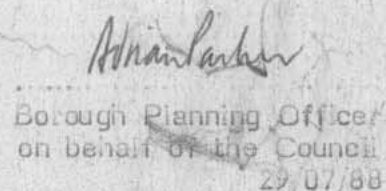 Adrian Parker
Borough Planning Officer
on behalf of the Council
29/07/88